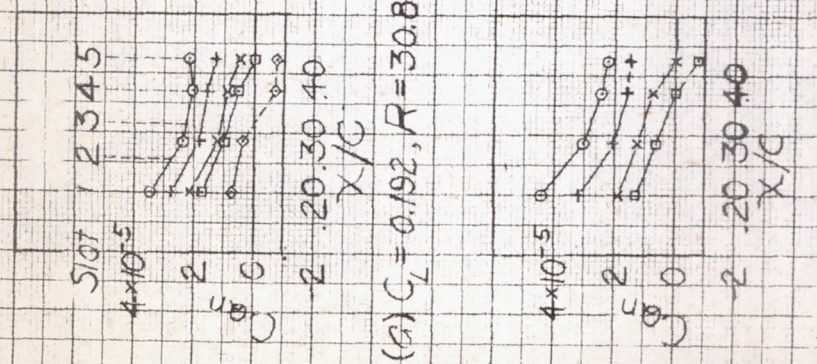 Slot 1 2 3 4 5
4×10⁻⁵
2
0
-2
C_Qn
.20 .30 .40
X/C
(a) C_L = 0.192, R = 30.8
4×10⁻⁵
2
0
-2
C_Qn
.20 .30 .40
X/C